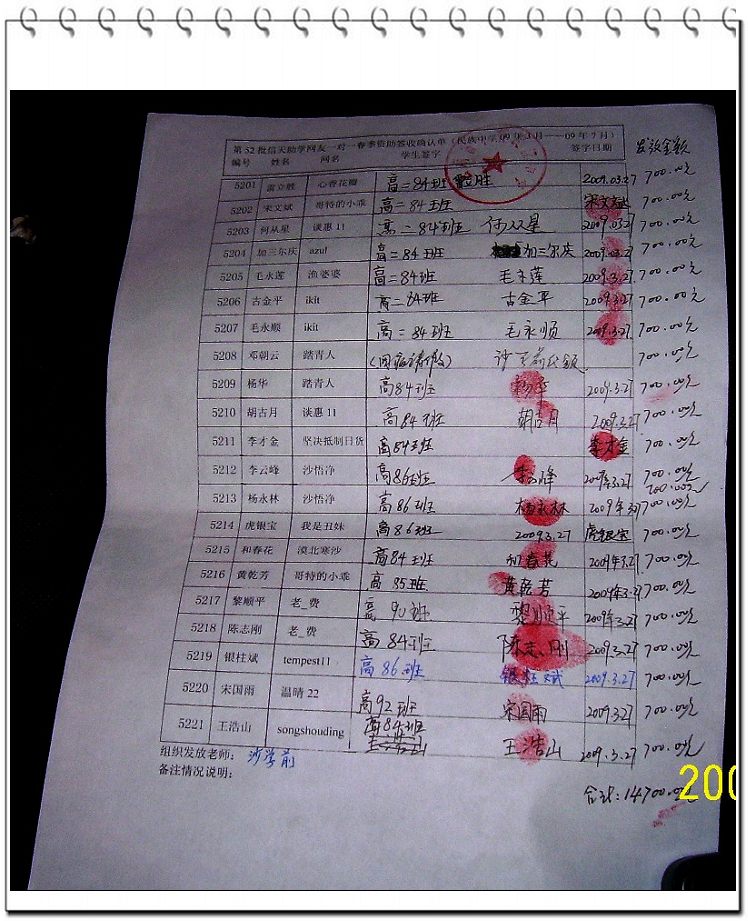 第52批信天助学网友一对一春季资助签收确认单(民族中学09年3月——09年7月)
编号 姓名 网名 学生签字 签字日期 发放金额
5201 雷立胜 心香花瓣 高二84班 胜 2009.03.27 700.00元
5202 宋文斌 哥特的小乖 高二84班 宋文斌 700.00元
5203 何从星 谈惠11 高二84班 何双星 2009.03.27 700.00元
5204 加三尔庆 azul 高二84班 加三尔庆 2009.03.27 700.00元
5205 毛永莲 渔婆婆 高二84班 毛永莲 2009.3.27 700.00元
5206 古金平 ikit 高二84班 古金平 2009.3.27 700.00元
5207 毛永顺 ikit 高二84班 毛永顺 2009.3.27 700.00元
5208 邓朝云 踏青人 (因病请假) 沙 代领 700.00元
5209 杨华 踏青人 高84班 杨华 2009.3.27 700.00元
5210 胡古月 谈惠11 高84班 胡古月 2009.3.27 700.00元
5211 李才金 坚决抵制日货 高84班 李才金 700.00元
5212 李云峰 沙悟净 高86班 李云峰 2009年3.27 700.00元
5213 杨永林 沙悟净 高86班 杨永林 2009年3.27 700.00元
5214 虎银宝 我是丑妹 高86班 2009.3.27 虎银宝 700.00元
5215 和春花 漠北寒沙 高84班 和春花 2009年3.27 700.00元
5216 黄乾芳 哥特的小乖 高85班 黄乾芳 2009年3.27 700.00元
5217 黎顺平 老_费 高90班 黎顺平 2009年3.27 700.00元
5218 陈志刚 老_费 高84班 陈志刚 2009.3.27 700.00元
5219 银柱斌 tempest11 高86班 银柱斌 2009.3.27 700.00元
5220 宋国雨 温晴22 高92班 宋国雨 2009.3.27 700.00元
5221 王浩山 songshouding 高84班 王浩山 2009.3.27 700.00元
组织发放老师: 沙学前
备注情况说明:
合计:14700.00元
200